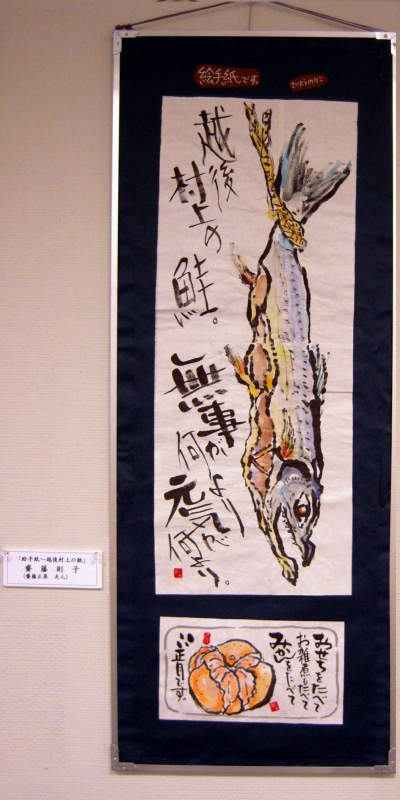 絵手紙です。
さいとうのりこ
越後
村上の
鮭。
無事が
何より
元気で
何より。
おせちをたべて
お雑煮もたべて
みかんをたべて
いい正月です。
「絵手紙～越後村上の鮭」
齋藤 則子
(齋藤正泉 夫人)